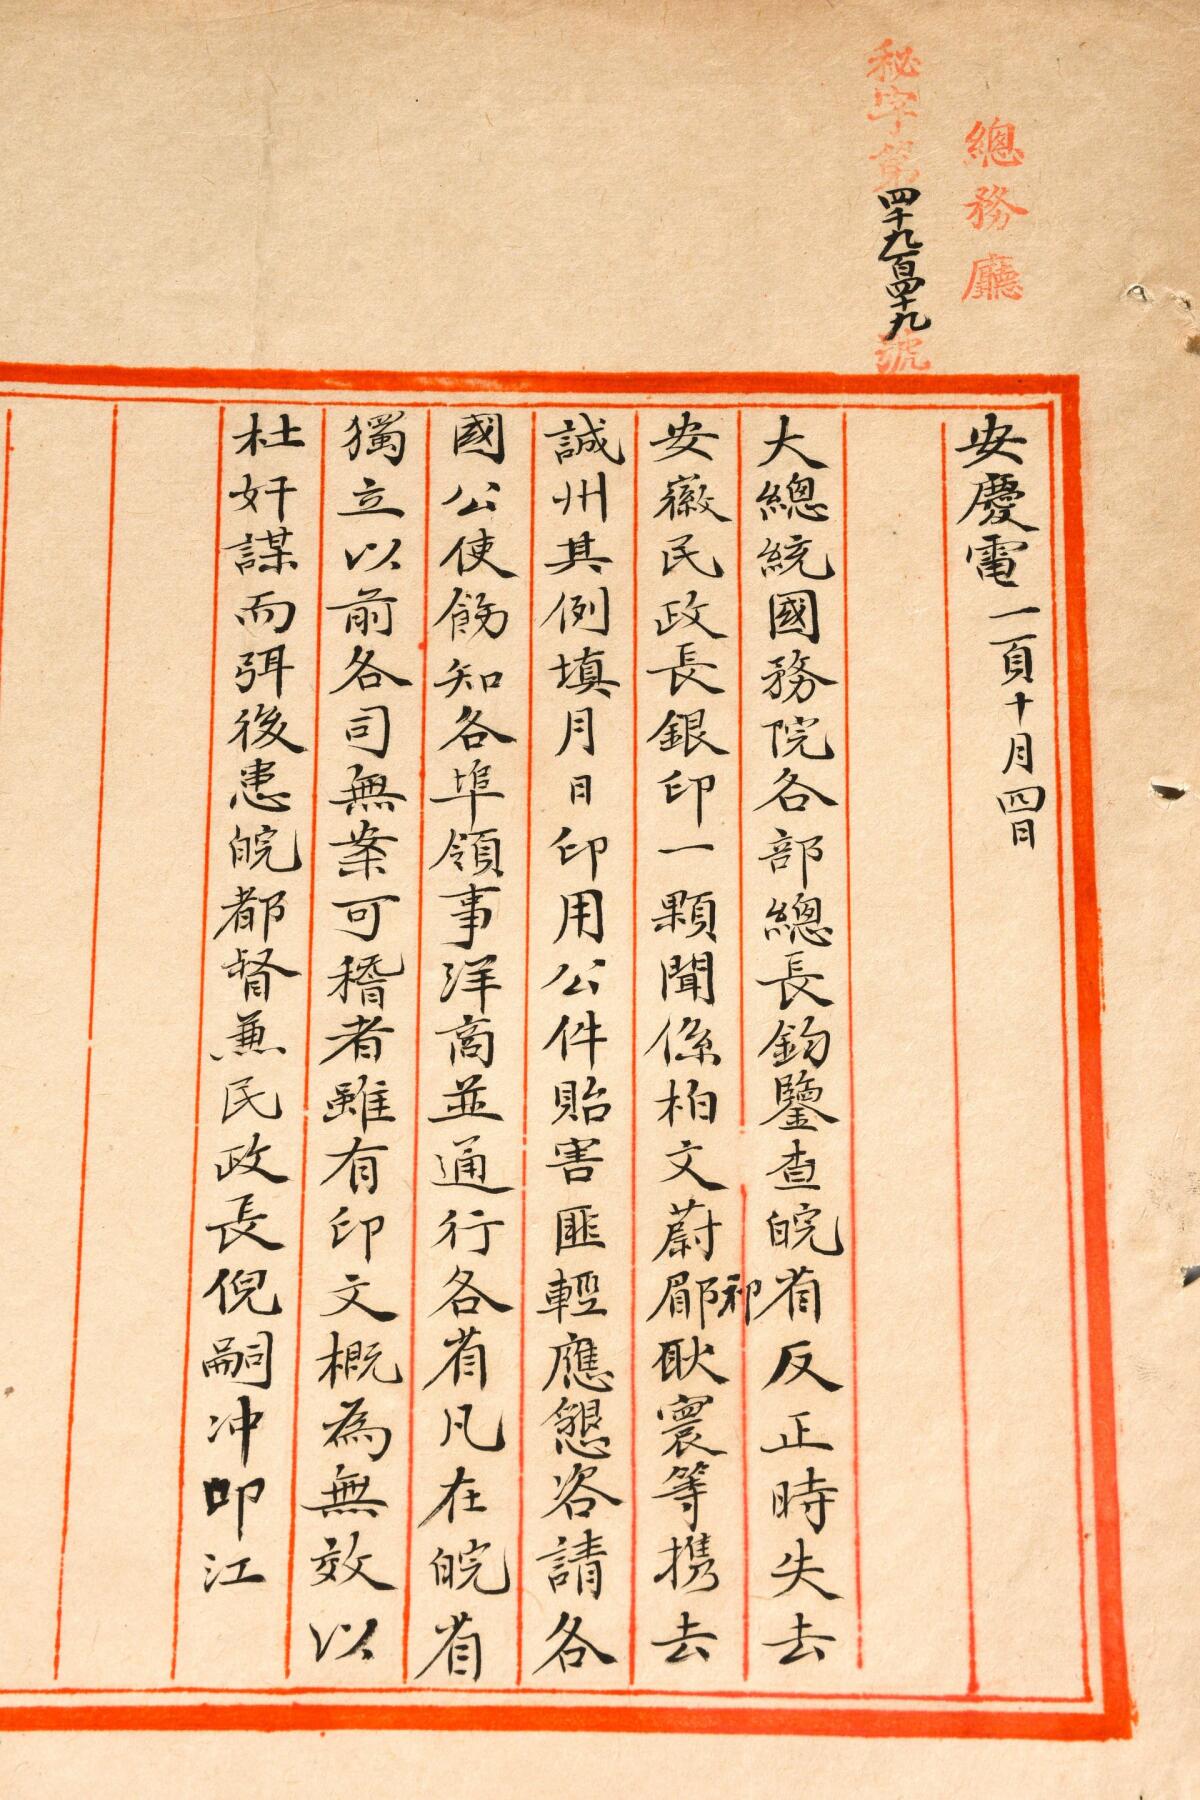 總務廳
秘字第四千九百四十九號
安慶電一頁十月四日
大總統國務院各部總長鈞鑒查皖省反正時失去
安徽民政長銀印一顆聞係柏文蔚郿祁耿寰等携去
誠州其例填月日印用公件貽害匪輕應懇咨請各
國公使飭知各埠領事洋商並通行各省凡在皖省
獨立以前各司無案可稽者雖有印文概為無效以
杜奸謀而弭後患皖都督兼民政長倪嗣冲叩江